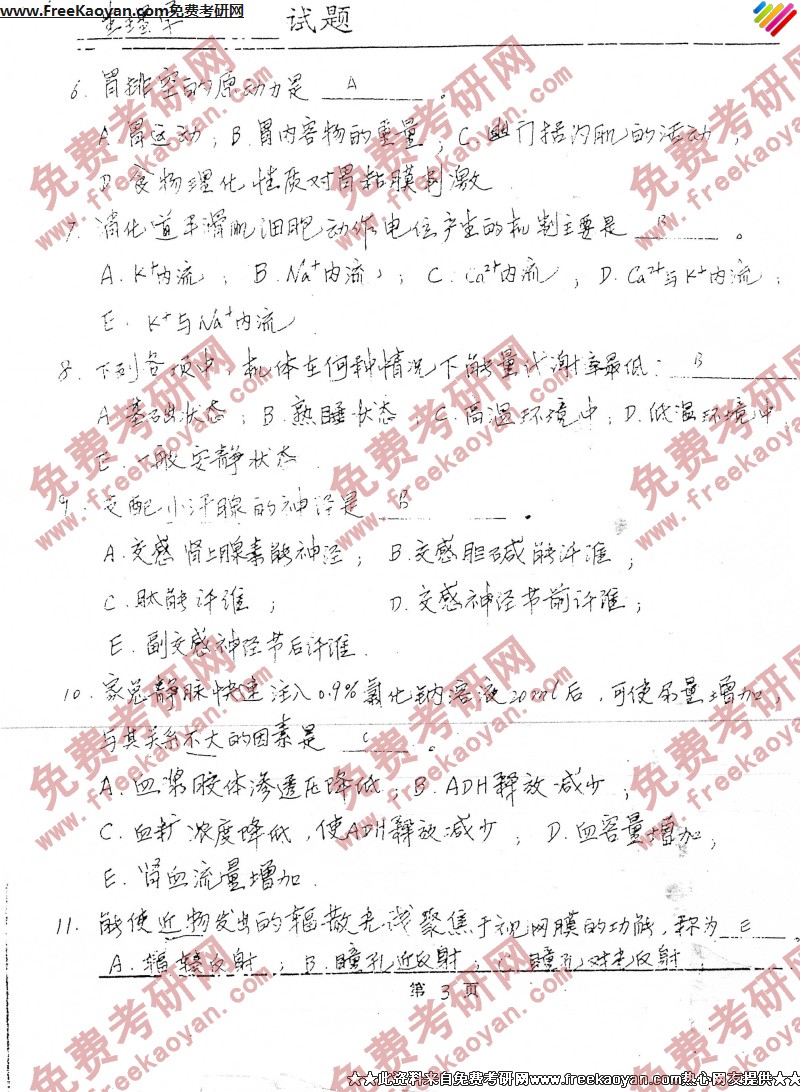 www.FreeKaoyan.com免费考研网
生理学 试题
6. 胃排空的原动力是 A 。
A. 胃运动; B. 胃内容物的重量; C. 幽门括约肌的活动;
D. 食物理化性质对胃粘膜刺激.
7. 消化道平滑肌细胞动作电位产生的机制主要是 B 。
A. K+内流; B. Na+内流; C. Ca2+内流; D. Ca2+与K+内流;
E. K+与Na+内流.
8. 下列各项中,机体在何种情况下能量代谢率最低: B
A. 基础状态; B. 熟睡状态; C. 高温环境中; D. 低温环境中
E. 一般安静状态.
9. 支配小汗腺的神经是 B .
A. 交感肾上腺素能神经; B. 交感胆碱能纤维;
C. 肽能纤维; D. 交感神经节前纤维;
E. 副交感神经节后纤维.
10. 家兔静脉快速注入0.9%氯化钠溶液20ml后,可使尿量增加,
与其关系不大的因素是 C 。
A. 血浆胶体渗透压降低; B. ADH释放减少;
C. 血旷浓度降低,使ADH释放减少; D. 血容量增加;
E. 肾血流量增加.
11. 能使近物发出的辐散光线聚焦于视网膜的功能,称为 E
A. 辐辏反射; B. 瞳孔近反射; C. 瞳孔对光反射;
第 3 页
★★此资料来自免费考研网www.freekaoyan.com热心网友提供★★